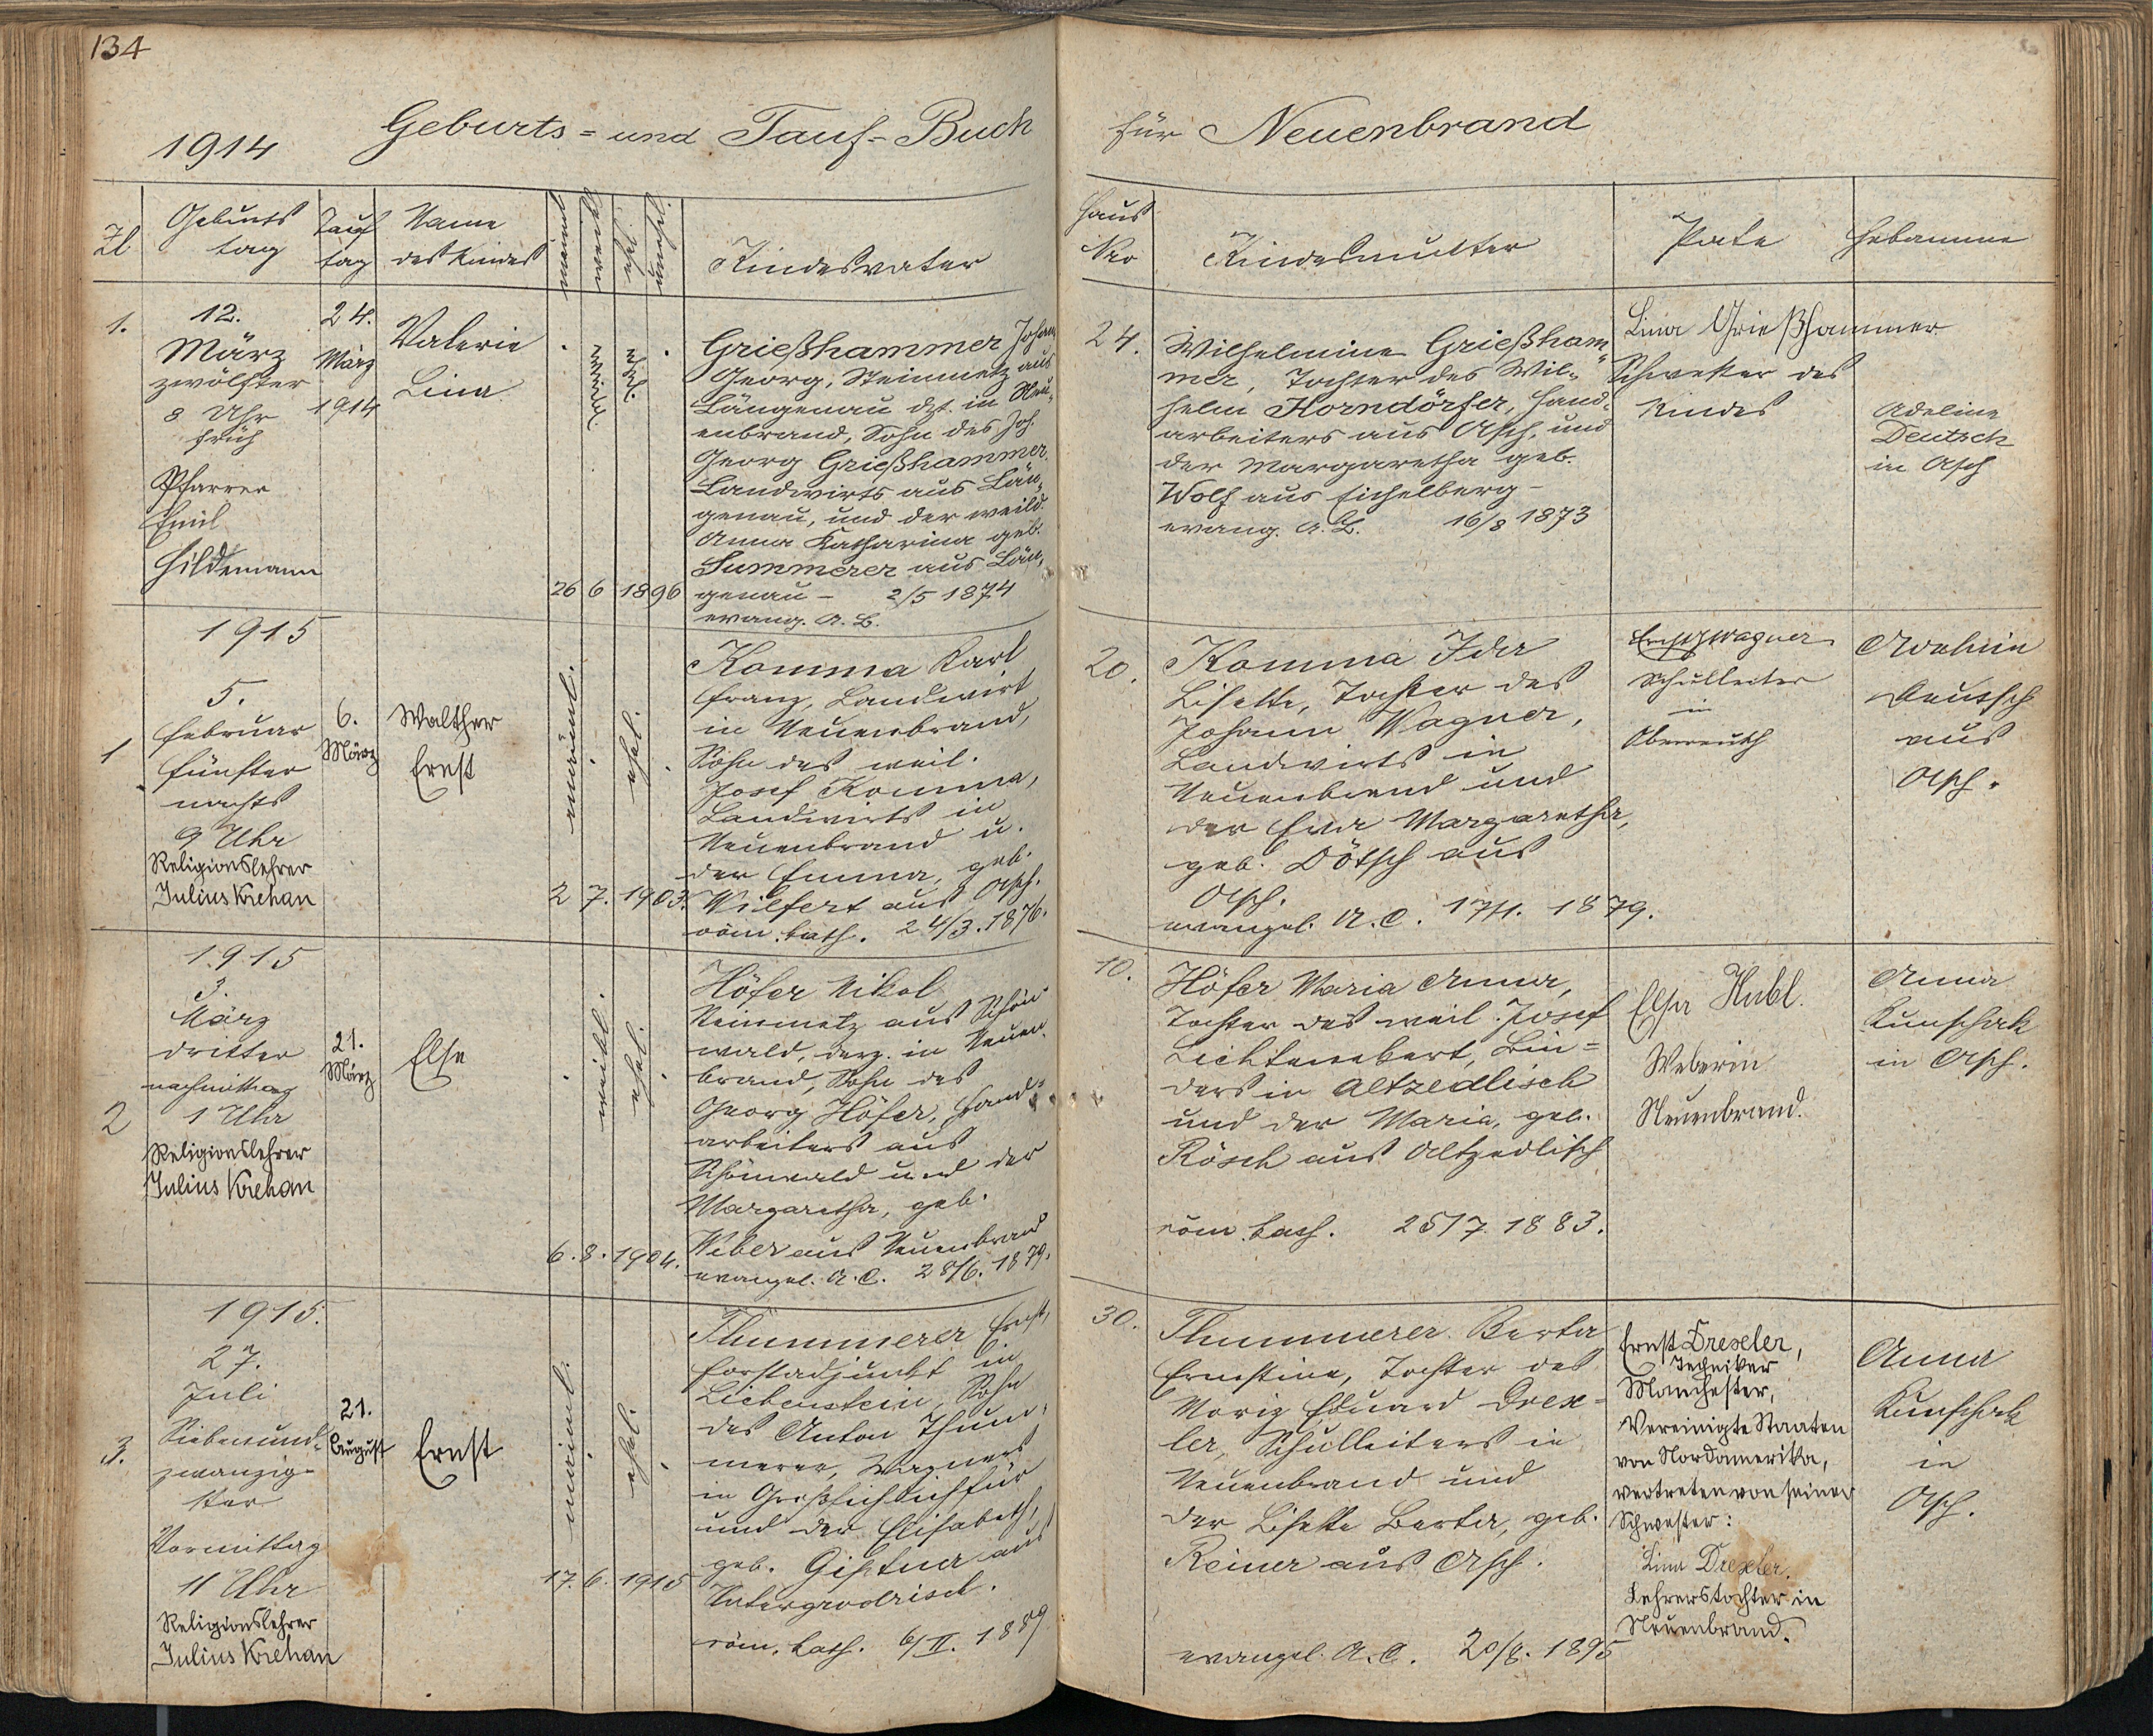 134
1914 Geburts- und Tauf-Buch
für Neuenbrand
Zl
Geburts
tag
Tauf
tag
Name
des Kindes
männl
weibl
ehel.
unehel.
Kindesvater
Haus
Nro
Kindesmutter
Pate
Hebamme
1.
12.
März
zwölfter
8 Uhr
früh
Pfarrer
Emil
Hildemann
24.
März
1914
Valerie
Lina
weibl.
ehel.
26 6 1896
Grießhammer Johann
Georg, Steinmetz aus
Längenau dzt. in Neu-
enbrand, Sohn des Joh.
Georg Grießhammer
Landwirts aus Län-
genau, und der weild.
Anna Katharina geb.
Summerer aus Län-
genau - 2/5 1874
evang. A. B.
24.
Wilhelmine Grießham-
mer, Tochter des Wil-
helm Korndörfer, Hand-
arbeiters aus Asch, und
der Margaretha geb.
Wolf aus Eichelberg -
evang. A. B. 16/8 1873
Lina Grießhammer
Schwester des
Kindes
Adeline
Deutsch
in Asch
1915
1
5.
Februar
fünfter
nachts
9 Uhr
Religionslehrer
Julius Krehan
6.
März
Walther
Ernst
männl.
ehel.
2 7. 1903.
Komma Karl
Franz, Landwirt
in Neuenbrand,
Sohn des weil.
Josef Komma,
Landwirts in
Neuenbrand u.
der Emma, geb.
Wilfert aus Asch.
röm. kath. 24/3. 1876.
20.
Komma Ida
Lisette, Tochter des
Johann Wagner,
Landwirts in
Neuenbrand und
der Eva Margaretha,
geb. Dötsch aus
Asch.
evangel. A. C. 17/1. 1879.
Ernst Wagner
Schulleiter
in
Oberreuth
Adeline
Deutsch
aus
Asch.
1915
2
3.
März
dritter
nachmittag
1 Uhr
Religionslehrer
Julius Krehan
21.
März
Else
weibl.
ehel.
6. 8. 1904.
Höfer Nikol
Steinmetz aus Schön-
wald, derz. in Neuen-
brand, Sohn des
Georg Höfer, Hand-
arbeiters aus
Schönwald und der
Margaretha, geb.
Weber aus Neuenbrand
evangel. A. C. 28/6. 1879.
10.
Höfer Maria Anna,
Tochter des weil. Josef
Lichtenebert, Bin-
ders in Altzedlisch
und der Maria, geb.
Rösch aus Altzedlisch
röm. kath. 25/7. 1883.
Elsa Hubl.
Weberin
Neuenbrand.
Anna
Kunschak
in Asch.
1915.
3.
27.
Juli
Siebenund-
zwanzig-
ster
Vormittag
11 Uhr
Religionslehrer
Julius Krehan
21.
August
Ernst
männl.
ehel.
17. 6. 1915
Thummerer Ernst,
Forstadjunkt in
Liebenstein, Sohn
des Anton Thum-
merer, Wagners
in
und der Elisabeth,
geb. aus
Untergrodrisch.
röm. kath. 6/II. 1889
30.
Thummerer Berta
Ernestine, Tochter des
Moriz Eduard Drex-
ler, Schulleiters in
Neuenbrand und
der Lisette Berta, geb.
Reiner aus Asch.
evangel. A. C. 20/8. 1895
Ernst Drexler,
Techniker
Manchester,
Vereinigte Staaten
von Nordamerika,
vertreten von seiner
Schwester:
Lina Drexler.
Lehrerstochter in
Neuenbrand.
Anna
Kunschak
in
Asch.